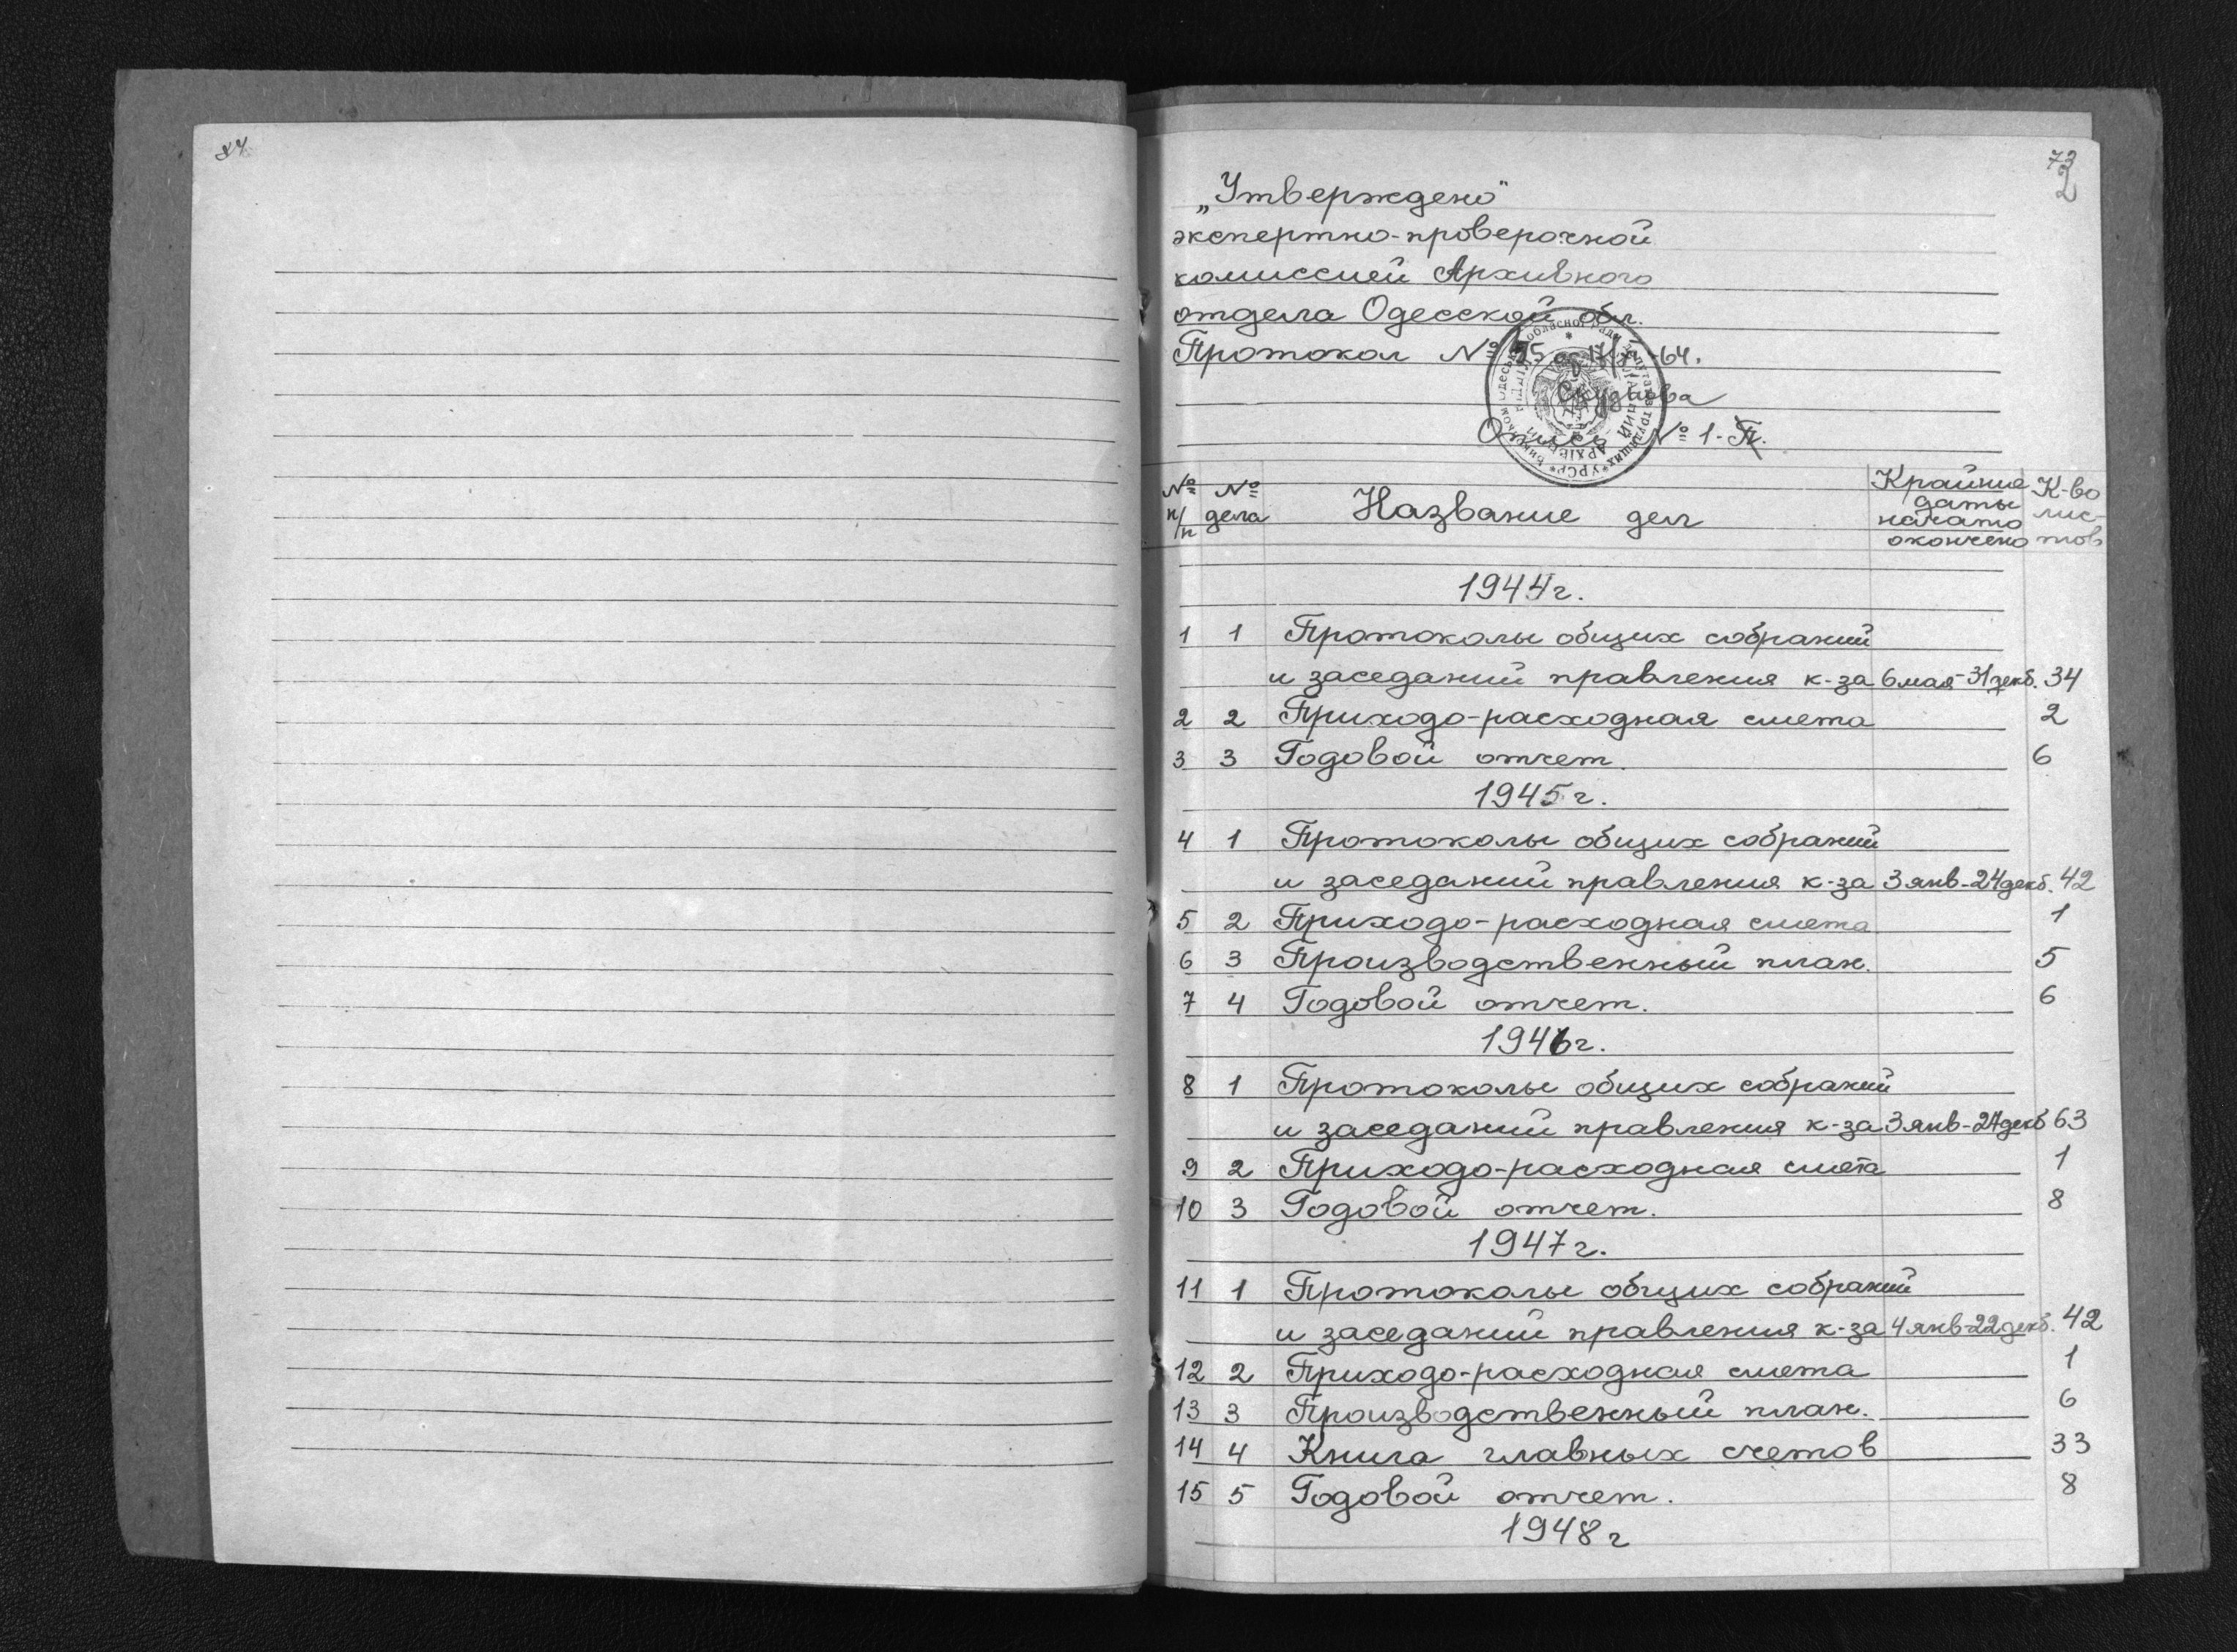 73
2
„Утверждено"
экспертно-проверочной
комиссией Архивного
отдела Одесской обл.
Протокол № -64.
Опись № 1-П.
№ п/п № дела Название дел Крайние даты начато окончено К-во листов
1944г.
1 1 Протоколы общих собраний
и заседаний правления к-за 6 мая-31 дек. 34
2 2 Приходо-расходная смета 2
3 3 Годовой отчет. 6
1945г.
4 1 Протоколы общих собраний
и заседаний правления к-за 3 янв-24 дек. 42
5 2 Приходо-расходная смета 1
6 3 Производственный план. 5
7 4 Годовой отчет. 6
1946г.
8 1 Протоколы общих собраний
и заседаний правления к-за 3 янв-27 дек 63
9 2 Приходо-расходная смета 1
10 3 Годовой отчет. 8
1947г.
11 1 Протоколы общих собраний
и заседаний правления к-за 4 янв-22 дек. 42
12 2 Приходо-расходная смета 1
13 3 Производственный план. 6
14 4 Книга главных счетов 33
15 5 Годовой отчет. 8
1948г